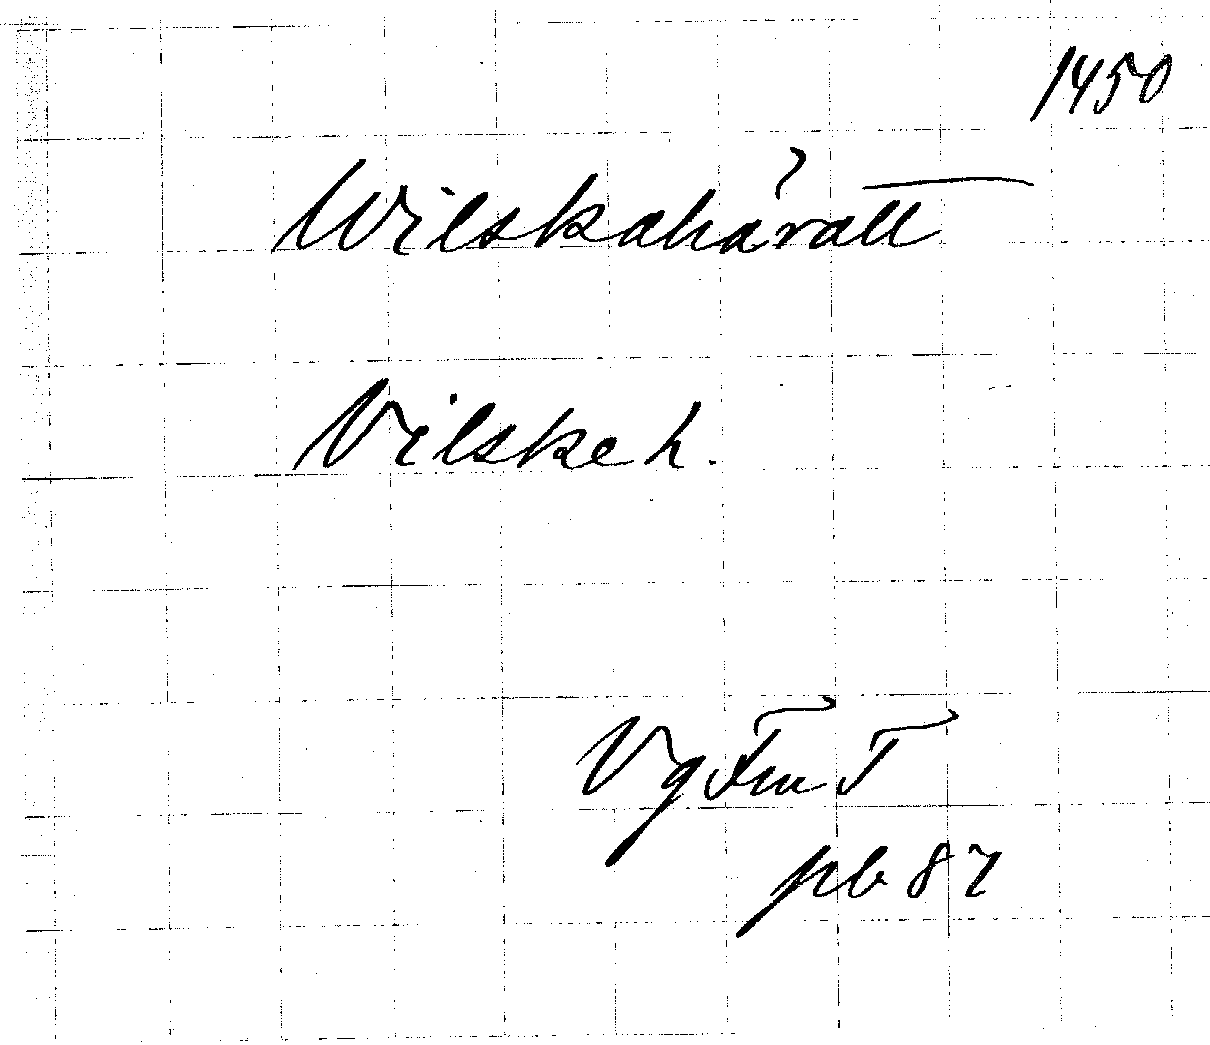 1450
Wilskahäratt
Vilske h.
Vg Fm T
pb 87